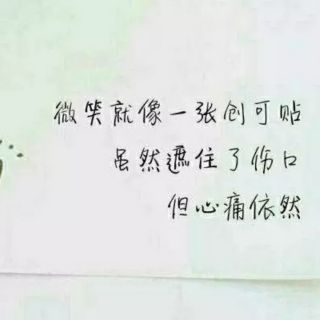 微笑就像一张创可贴
虽然遮住了伤口
但心痛依然